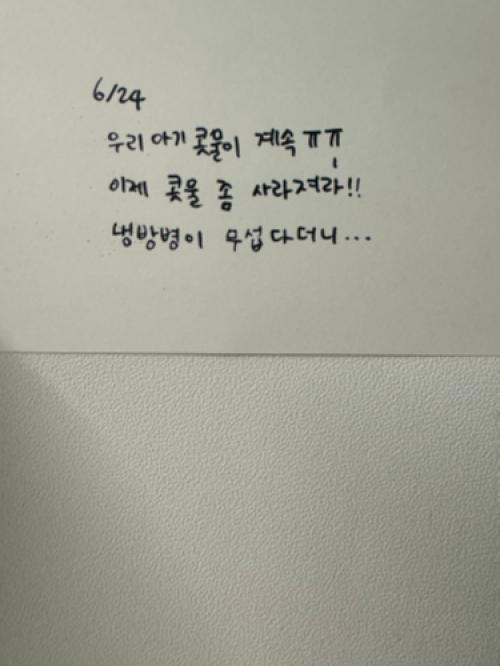 6/24
우리 아기 콧물이 계속 ㅠㅠ
이제 콧물 좀 사라져라!!
냉방병이 무섭다더니...